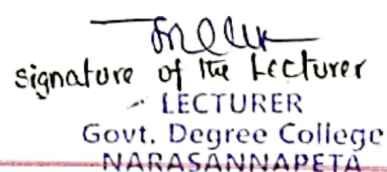 signature of the Lecturer
LECTURER
Govt. Degree College
NARASANNAPETA